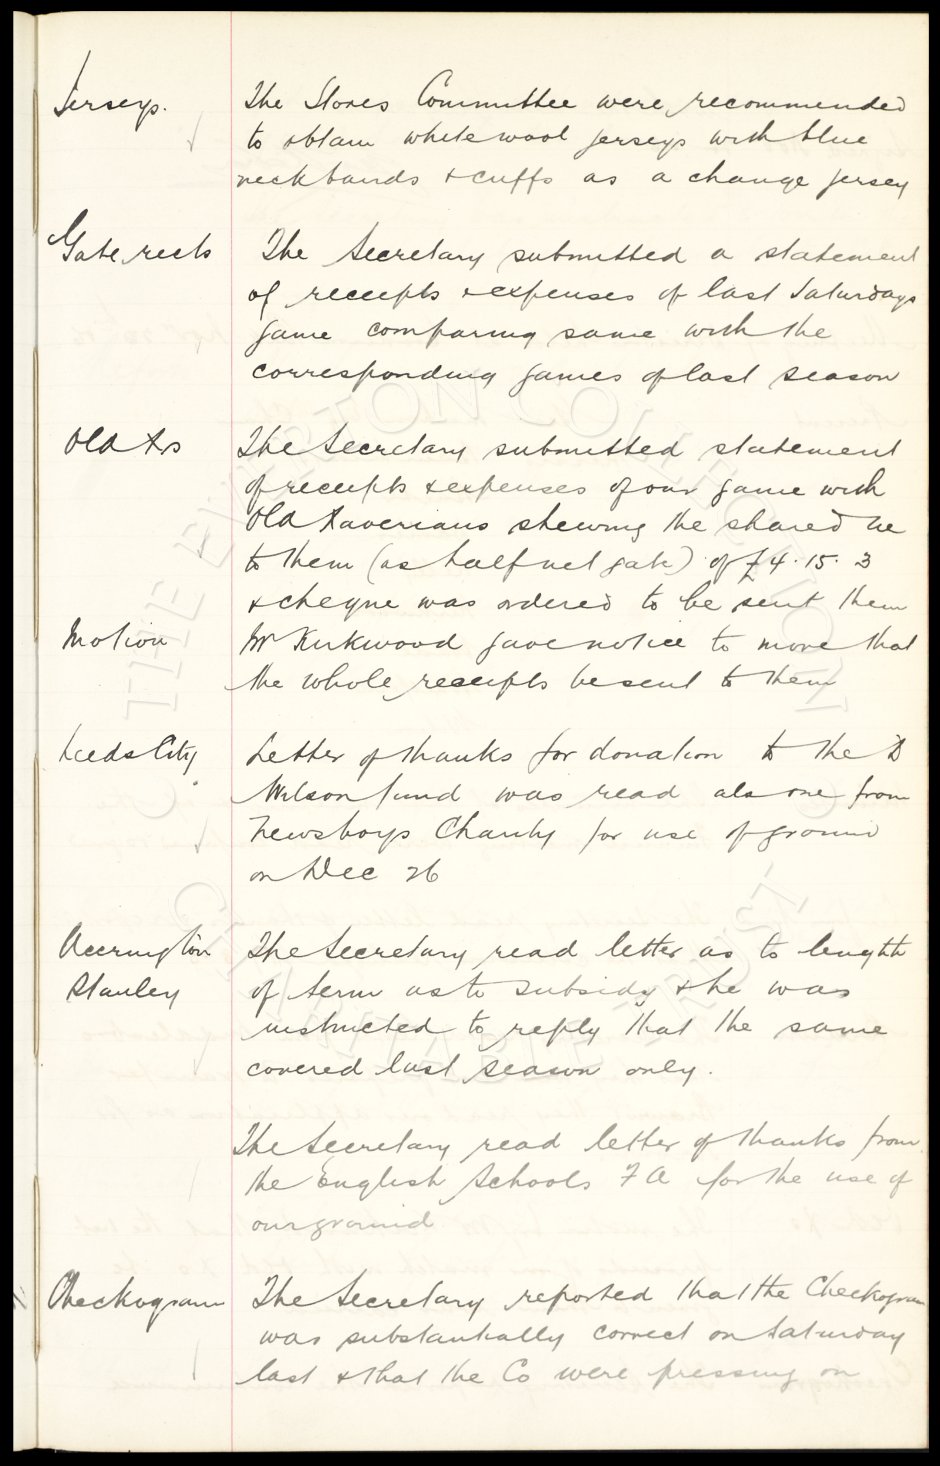 Jerseys. The Stores Committee were recommended
to obtain white wool jerseys with blue
neckbands & cuffs as a change jersey
Gate rects The Secretary submitted a statement
of receipts & expenses of last Saturdays
game comparing same with the
corresponding games of last season
Old Xs The Secretary submitted statement
of receipts & expenses of our game with
Old Xaverians shewing the shared
to them (as half net gate) of £4.15.3
& cheque was ordered to be sent them
Motion Mr Kirkwood gave notice to move that
the whole receipts be sent to them
Leeds City Letter of thanks for donation to the D
Wilson fund was read also one from
Newsboys Charity for use of ground
on Dec 26
Accrington The Secretary read letter as to length
Stanley of term as to subsidy & he was
instructed to reply that the same
covered last season only.
The Secretary read letter of thanks from
the English Schools F A for the use of
our ground
Checkogram The Secretary reported that the Checkogram
was substantially correct on Saturday
last & that the Co were pressing on
THE EVERTON COLLECTION
CHARITABLE TRUST